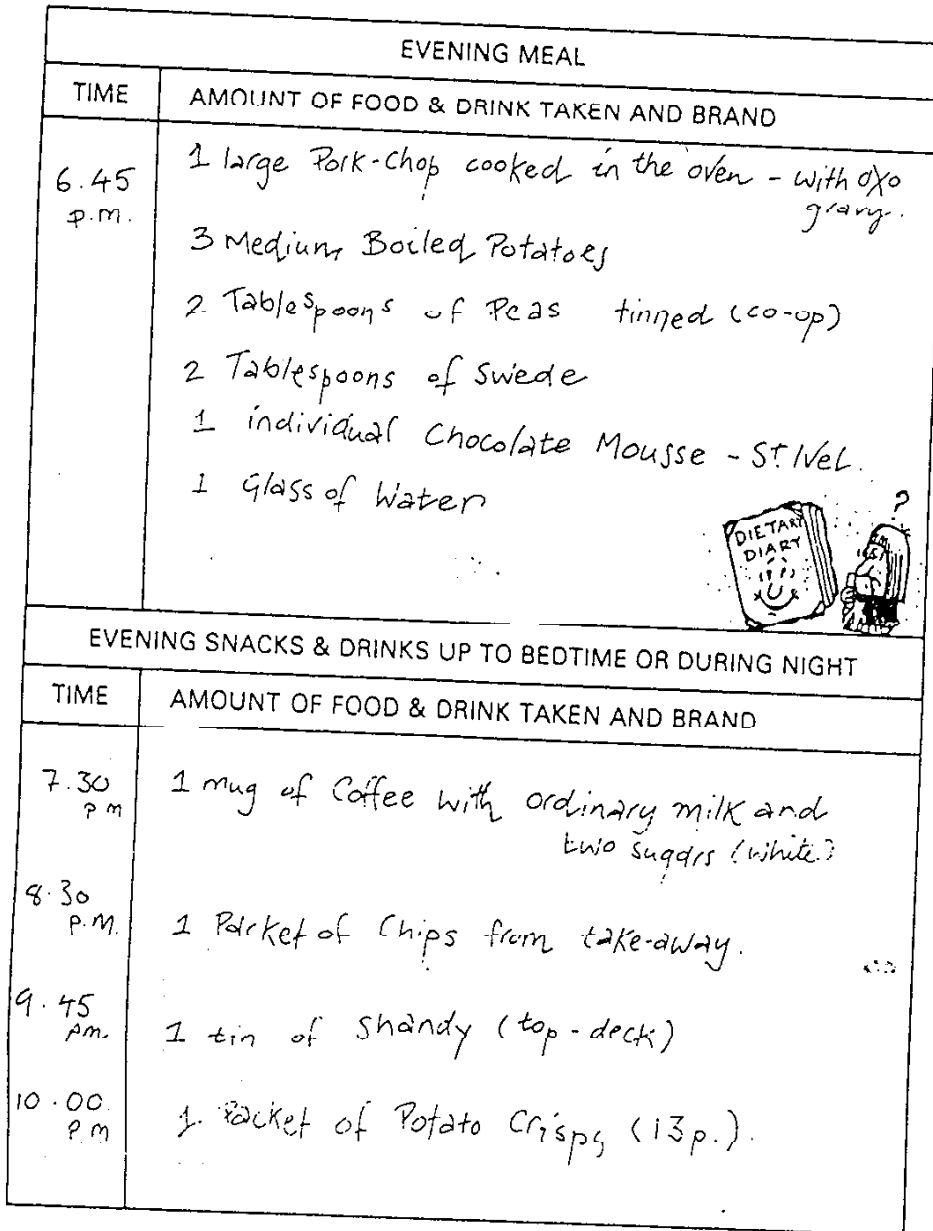 EVENING MEAL
TIME AMOUNT OF FOOD & DRINK TAKEN AND BRAND
6.45 p.m. 1 large Pork-Chop cooked in the oven - with oxo
gravy.
3 Medium Boiled Potatoes
2 Tablespoons of Peas tinned (co-op)
2 Tablespoons of Swede
1 individual Chocolate Mousse - St. Ivel.
1 Glass of Water
DIETARY
DIARY
?
EVENING SNACKS & DRINKS UP TO BEDTIME OR DURING NIGHT
TIME AMOUNT OF FOOD & DRINK TAKEN AND BRAND
7.30 PM 1 mug of Coffee with ordinary milk and
two sugars (white)
8.30 P.M. 1 Packet of Chips from take-away.
9.45 pm. 1 tin of Shandy (top-deck)
10.00 PM 1. Packet of Potato Crisps (13p.).